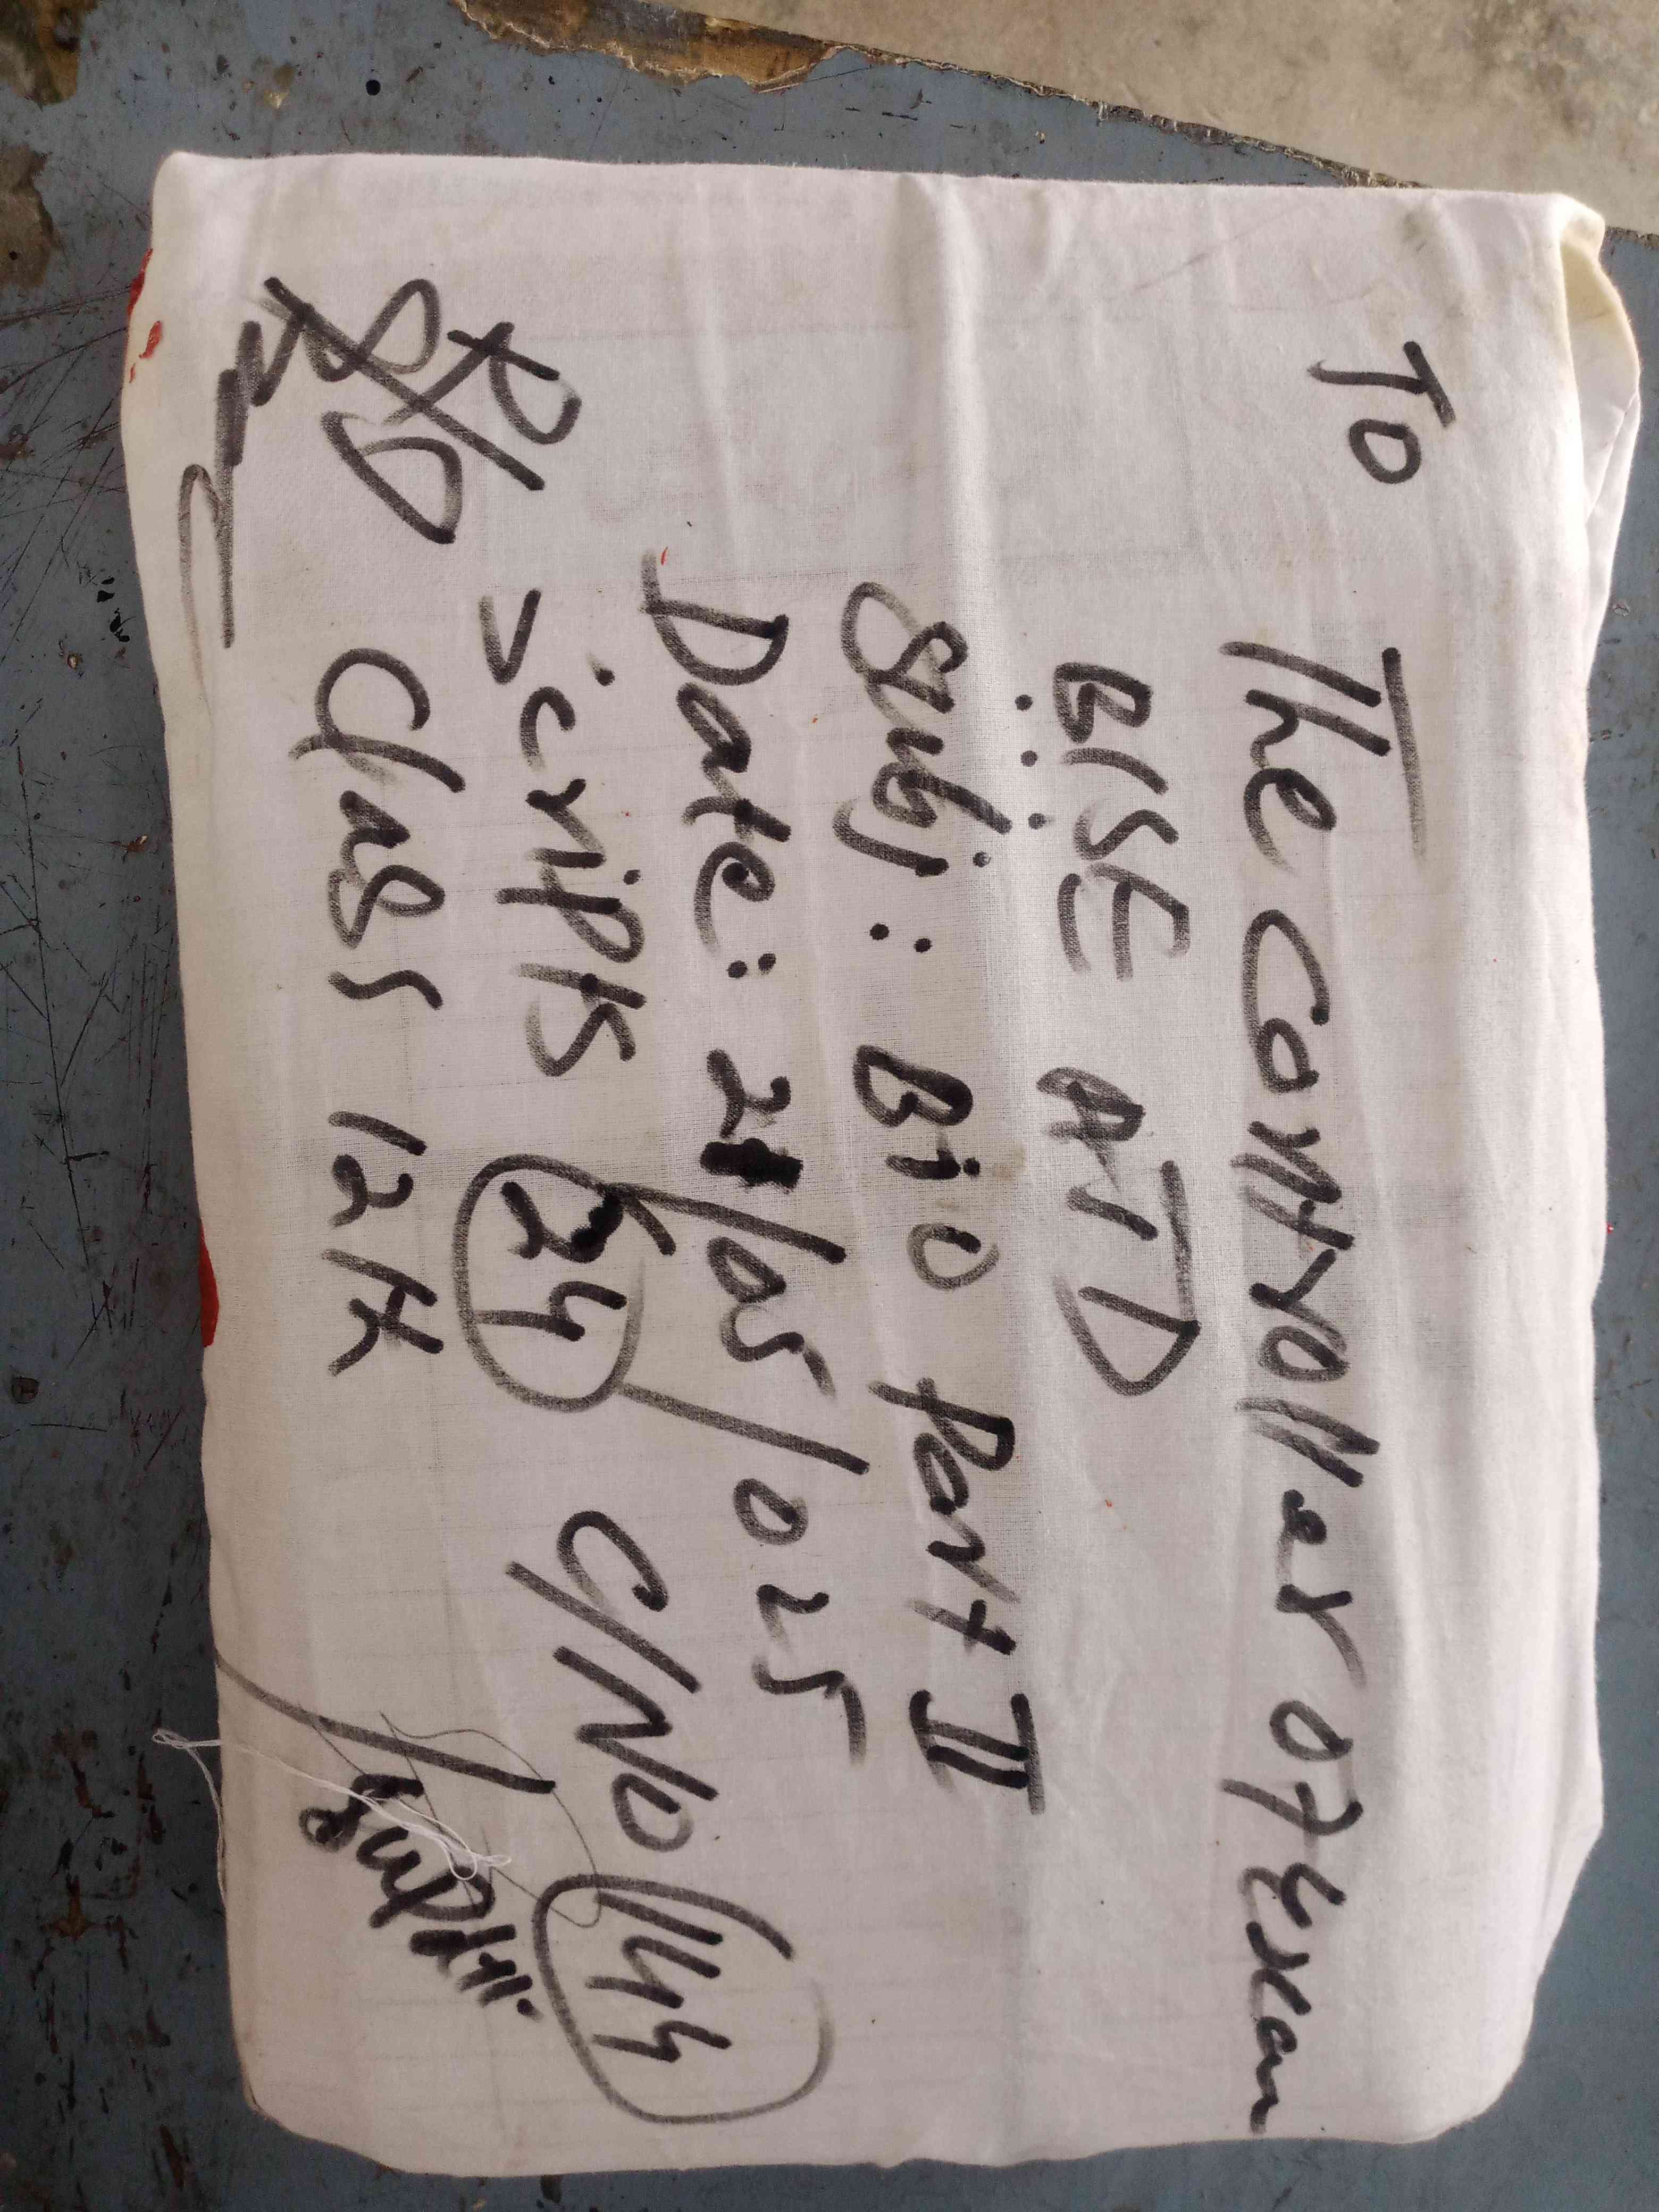 To
The Controller of Exam
BISE ATD
Subj: Bio Part II
Date: 21/05/025
Scripts 24 C/No 144
Class 12th